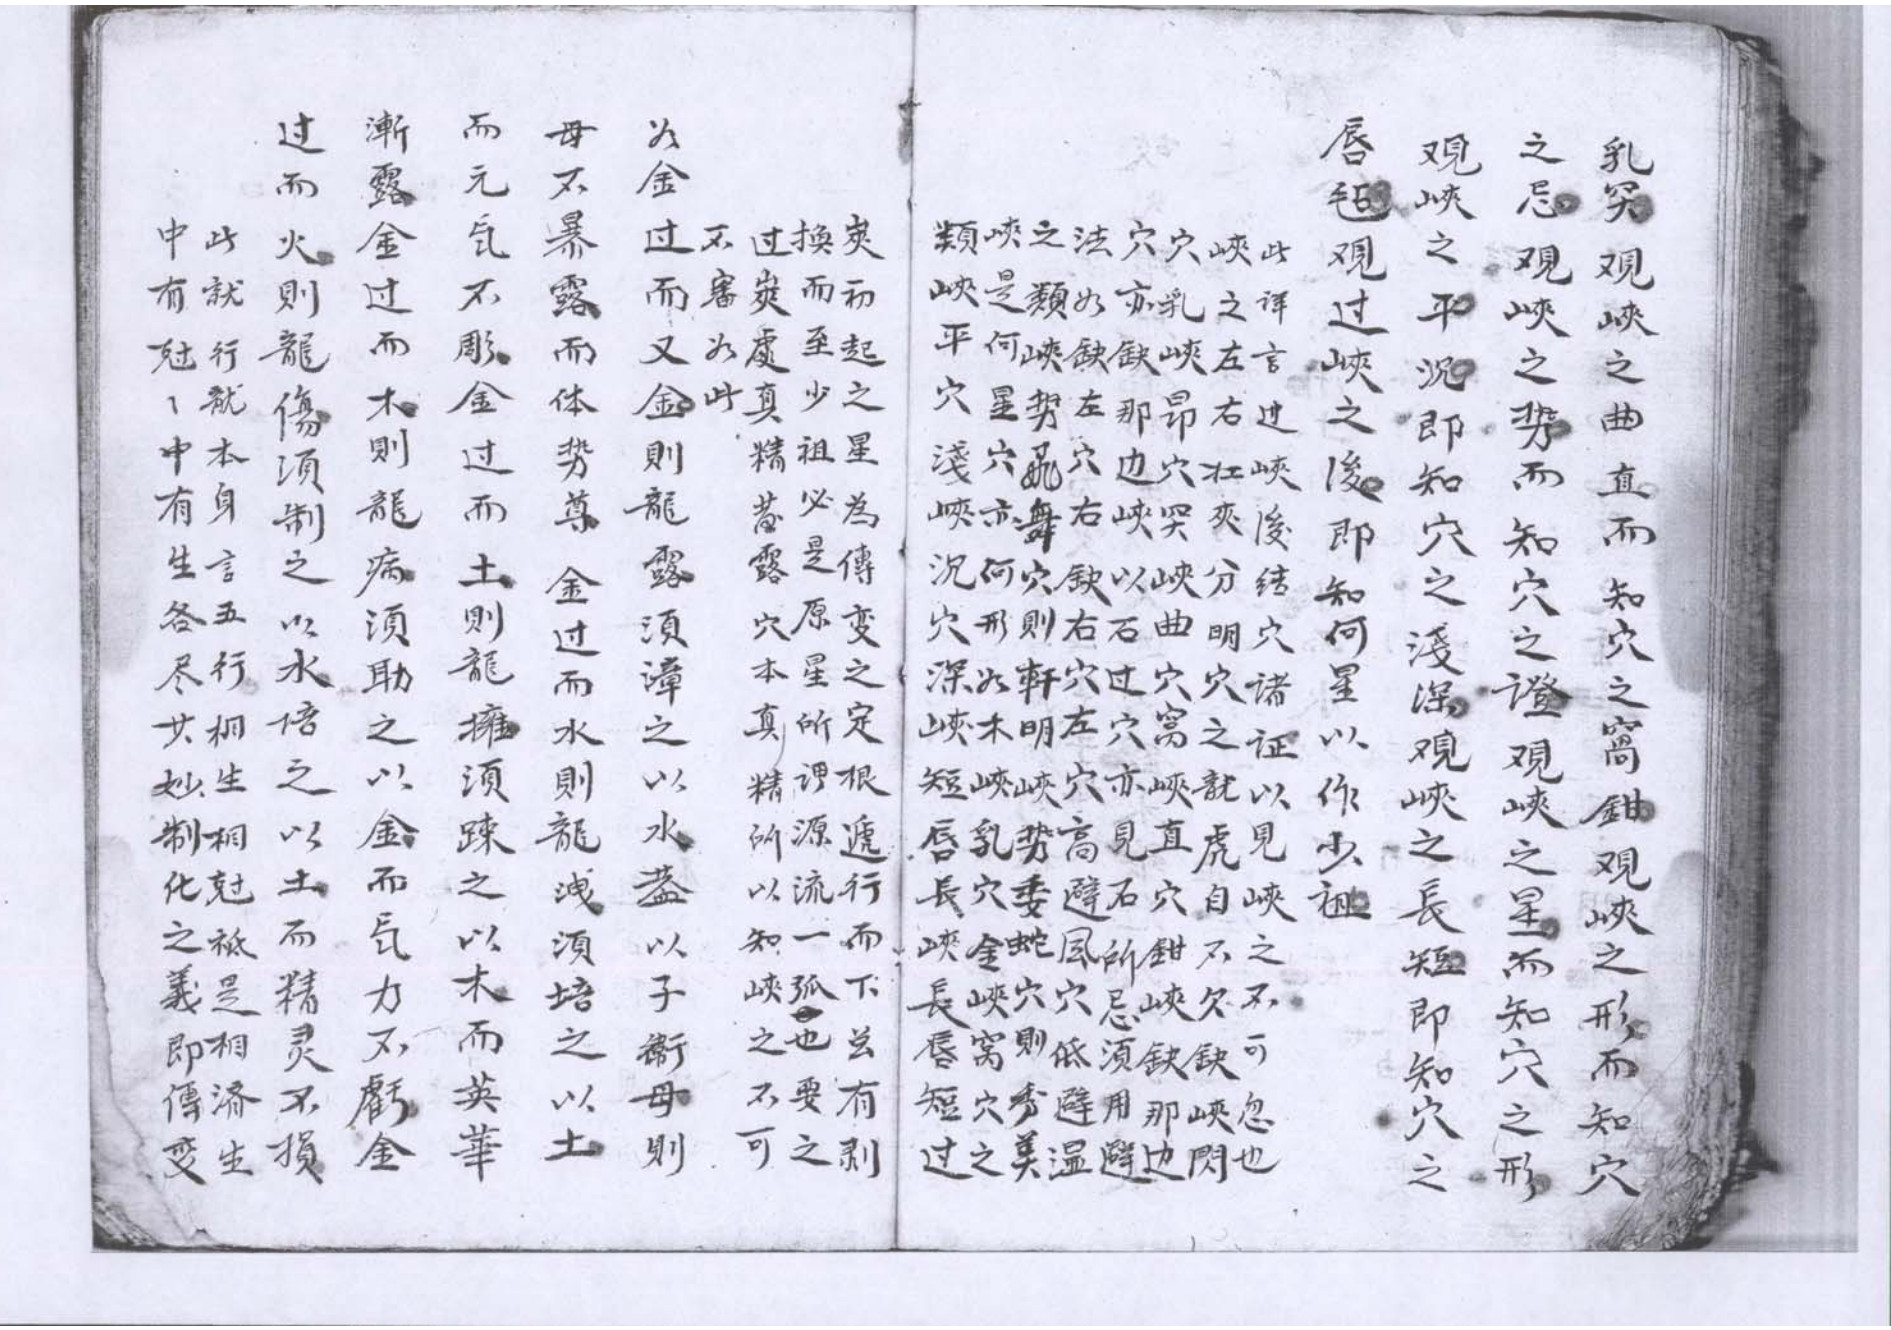 乳突观峽之曲直而知穴之窩鉗观峽之形而知穴
之忌观峽之势而知穴之證观峽之星而知穴之形
观峽之平況即知穴之淺深观峽之長短即知穴之
唇毡观过峽之後即知何星以作少祖
此詳言过峽後结穴诸证以見峽之不可忽也
峽之左右扛夾分明穴之龍虎自不欠缺峽閃
穴乳峽昂穴突峽曲穴窩峽直穴鉗峽缺那边
穴亦缺那边峽以石过穴亦見石所忌須用避
法如缺左穴右缺右穴左穴高避风穴低避温
之類峽势飛舞穴則軒明峽势委蛇穴則秀美
峽是何星穴亦何形如木峽乳穴金峽窩穴之
類峽平穴淺峽況穴深峽短唇長峽長唇短过
峽初起之星為傳变之定根遞行而下并有剥
換而至少祖必是原星所谓源流一弧也要之
过峽處真精發露穴本真精所以知峽之不可
不審如此
如金过而又金則龍露須漳之以水葢以子衛母則
母不暴露而体势尊金过而水則龍洩須培之以土
而元气不彫金过而土則龍擁須踈之以木而英華
漸露金过而木則龍病須助之以金而气力不虧金
过而火則龍傷須制之以水培之以土而精灵不損
此就行龍本身言五行相生相尅祗是相济生
中有尅〻中有生各尽其妙制化之義即傳变